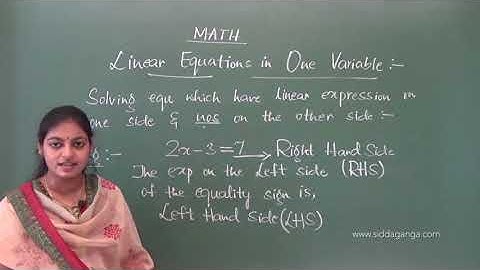 MATH
Linear Equations in One Variable:-
Solving equ which have linear expression on
one side & nos on the other side:-
g:- 2x-3=7 → Right Hand Side
The exp on the Left side (RHS)
of the equality sign is,
Left Hand Side (LHS)
www.siddaganga.com